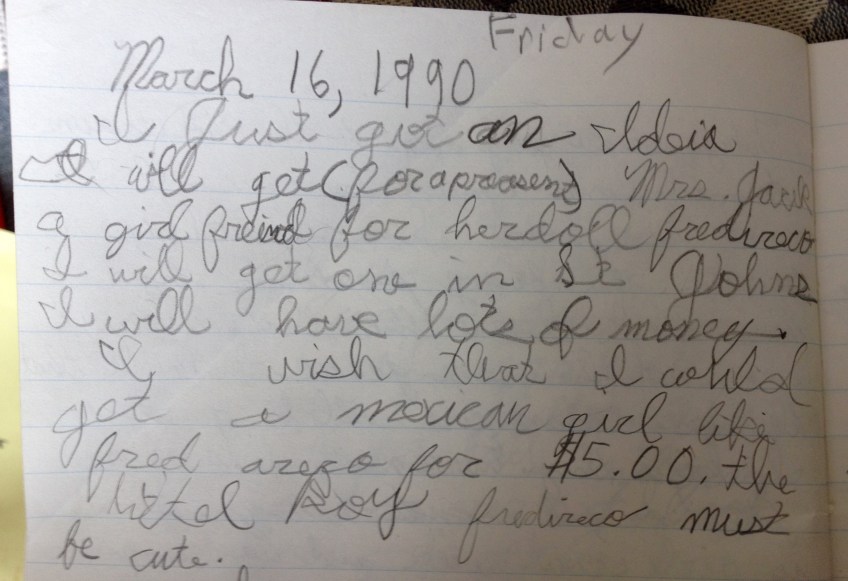 Friday
March 16, 1990
I Just got an Ideia
I will get (for a preasent) Mrs. Jack
a girl freind for her doll fredireco
I will get one in St Johns
I will have lots of money.
I wish that I could
get a mexican girl like
fred areco for $5.00. the
littel Boy fredireco must
be cute.